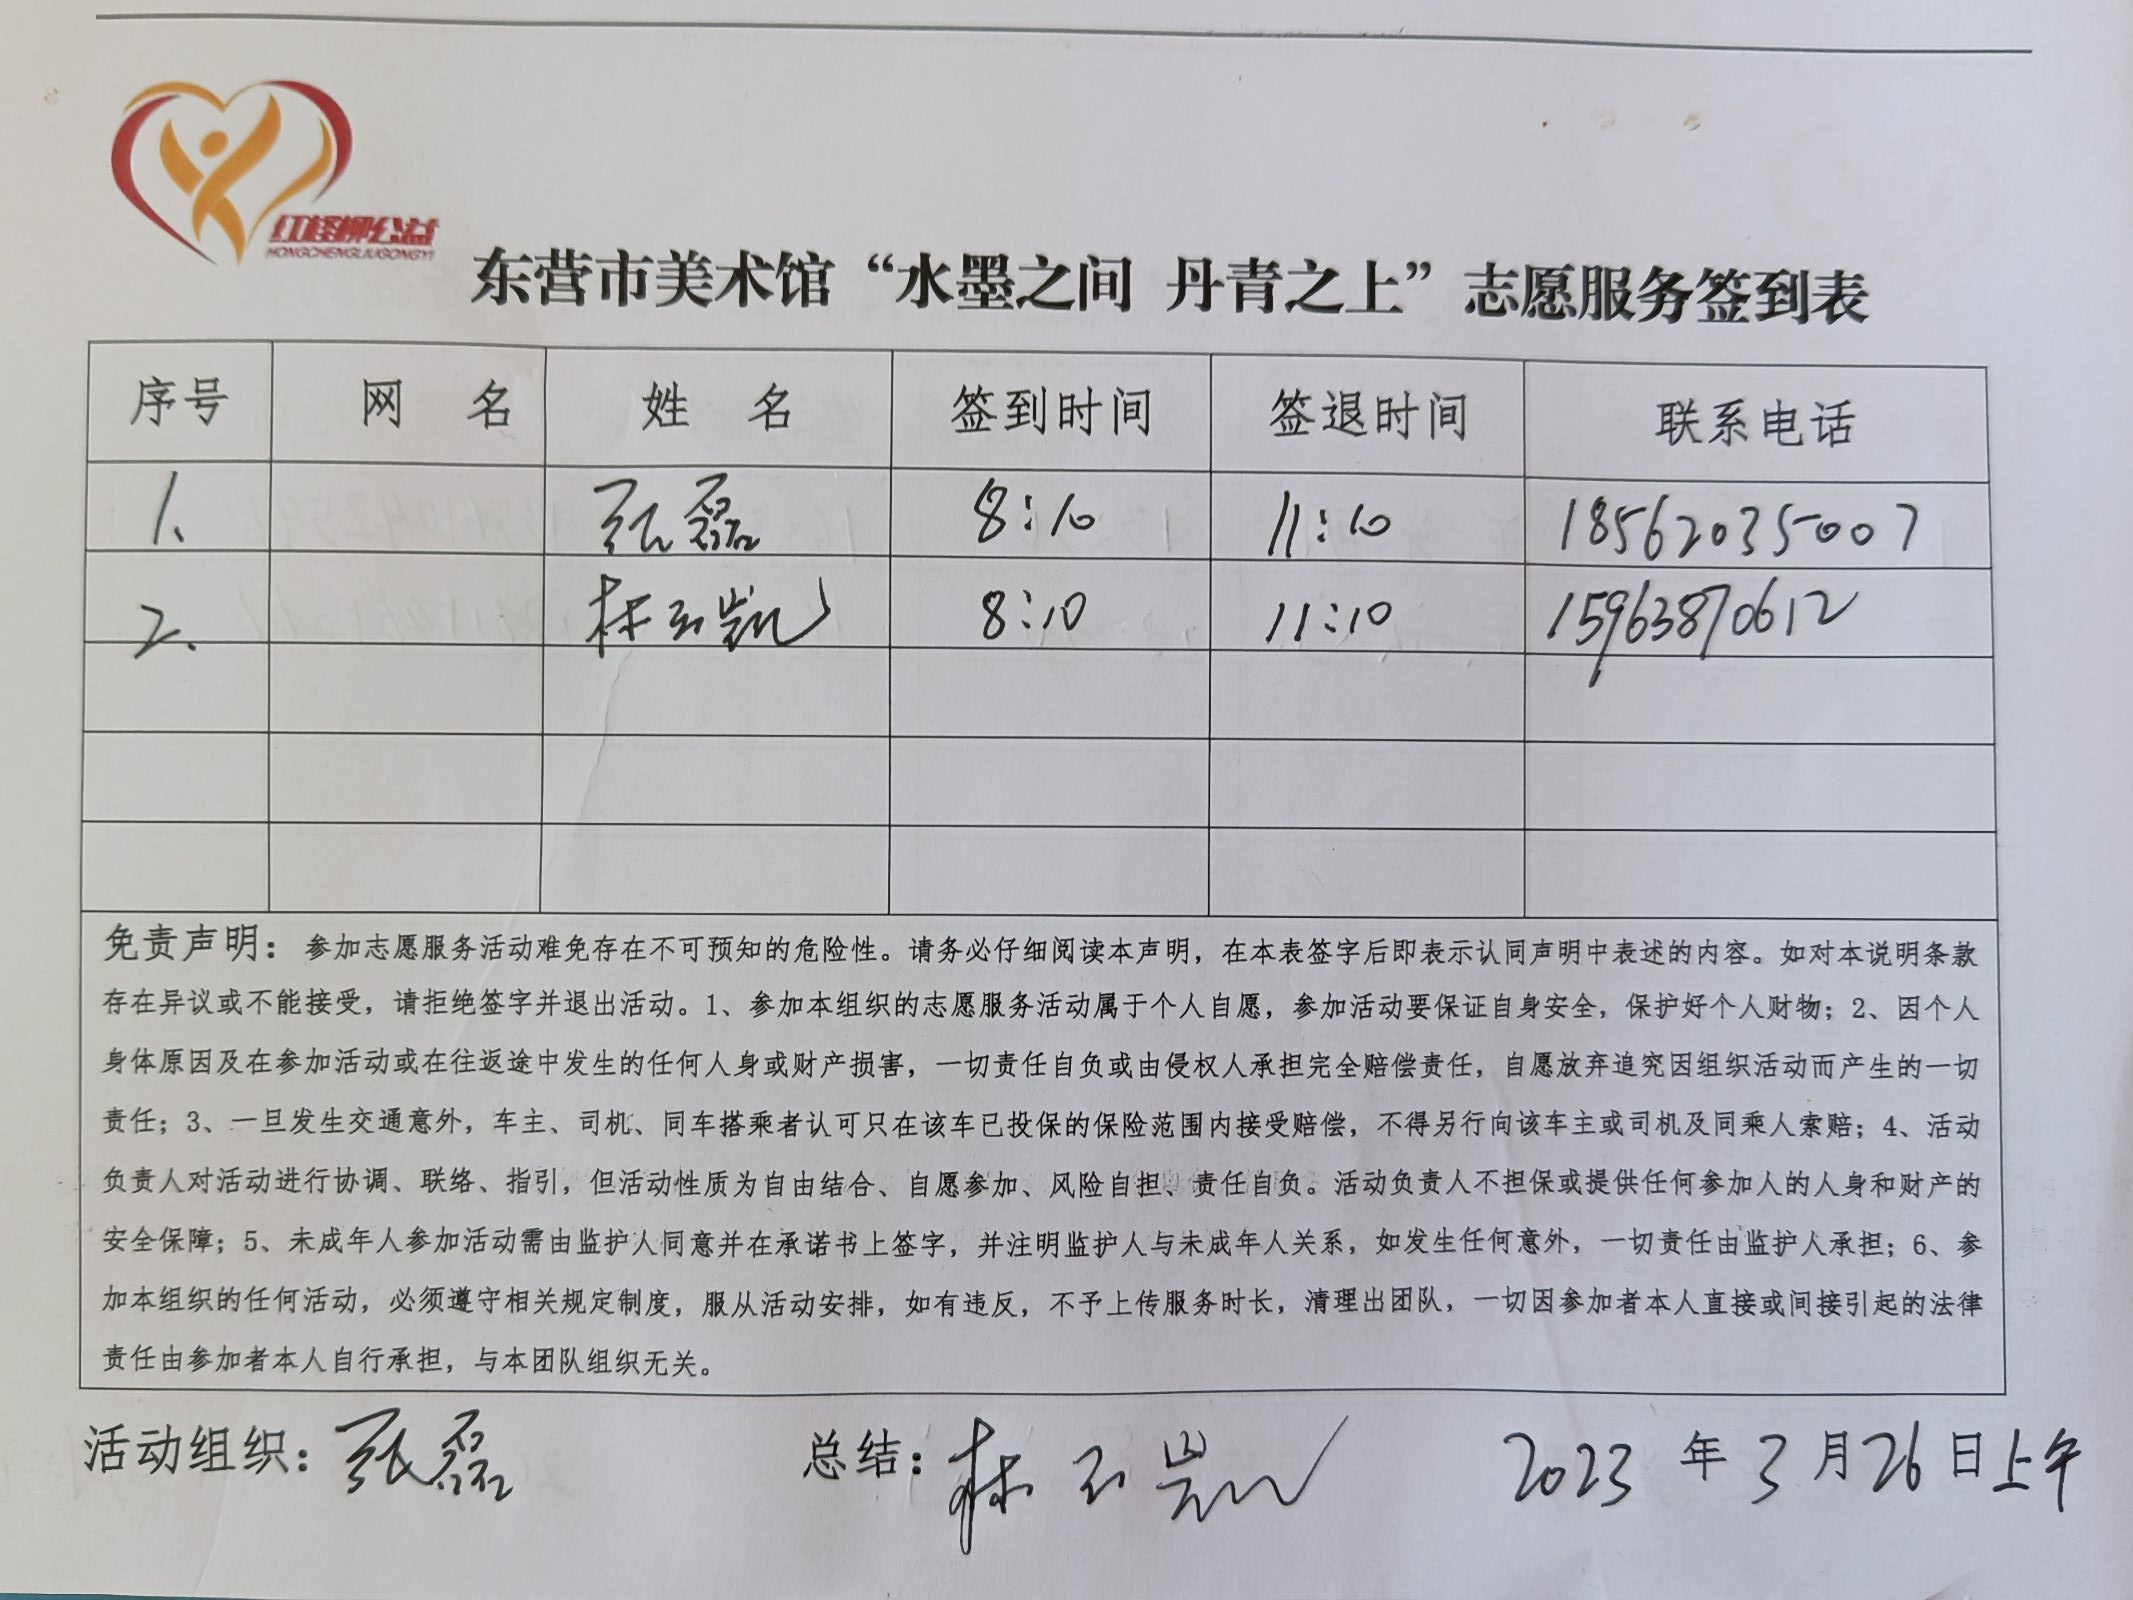 红柽柳公益
HONGCHENGLIUGONGYI
东营市美术馆“水墨之间 丹青之上”志愿服务签到表
序号 网 名 姓 名 签到时间 签退时间 联系电话
1、 张磊 8:10 11:10 18562035007
2. 林玉凯 8:10 11:10 15963870612
免责声明：参加志愿服务活动难免存在不可预知的危险性。请务必仔细阅读本声明，在本表签字后即表示认同声明中表述的内容。如对本说明条款
存在异议或不能接受，请拒绝签字并退出活动。1、参加本组织的志愿服务活动属于个人自愿，参加活动要保证自身安全，保护好个人财物；2、因个人
身体原因及在参加活动或在往返途中发生的任何人身或财产损害，一切责任自负或由侵权人承担完全赔偿责任，自愿放弃追究因组织活动而产生的一切
责任；3、一旦发生交通意外，车主、司机、同车搭乘者认可只在该车已投保的保险范围内接受赔偿，不得另行向该车主或司机及同乘人索赔；4、活动
负责人对活动进行协调、联络、指引，但活动性质为自由结合、自愿参加、风险自担、责任自负。活动负责人不担保或提供任何参加人的人身和财产的
安全保障；5、未成年人参加活动需由监护人同意并在承诺书上签字，并注明监护人与未成年人关系，如发生任何意外，一切责任由监护人承担；6、参
加本组织的任何活动，必须遵守相关规定制度，服从活动安排，如有违反，不予上传服务时长，清理出团队，一切因参加者本人直接或间接引起的法律
责任由参加者本人自行承担，与本团队组织无关。
活动组织：张磊 总结：林玉凯 2023 年 3 月 26 日上午